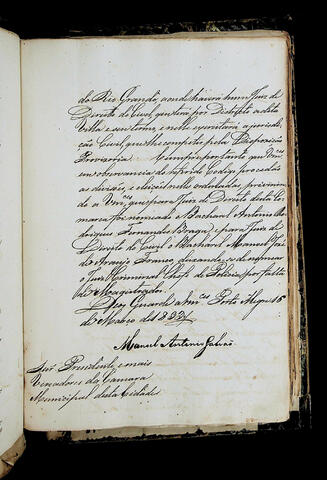 do Rio Grande, aonde haverá hum Juiz de
Direito do Civel, que terá por Districto a dita
Villa e seu termo, e nelle exercitará a jurisdic-
ção Civel, que lhe compete pela Disposição
Provizoria. Cumpre portanto, que V.mces
em observancia do referido Codigo procedão
as divisões, e eleições nelle ordenadas, prevenin-
do a V.mces que para Juiz de Direito desta Co-
marca foi nomeado o Bacharel Antonio Ro-
drigues Fernandes Braga, e para Juiz de
Direito do Civel o Bacharel Manoel José
de Araujo Franco, ficando
o Juiz Criminal Chefe de Policia por falta
de Magistrados.
Deos Guarde a V.mces Porto Alegre 15
de Março de 1833
Manuel Antonio Galvão
Snr.es Prezidente, e mais
Vereadores da Camara
Municipal desta Cidade